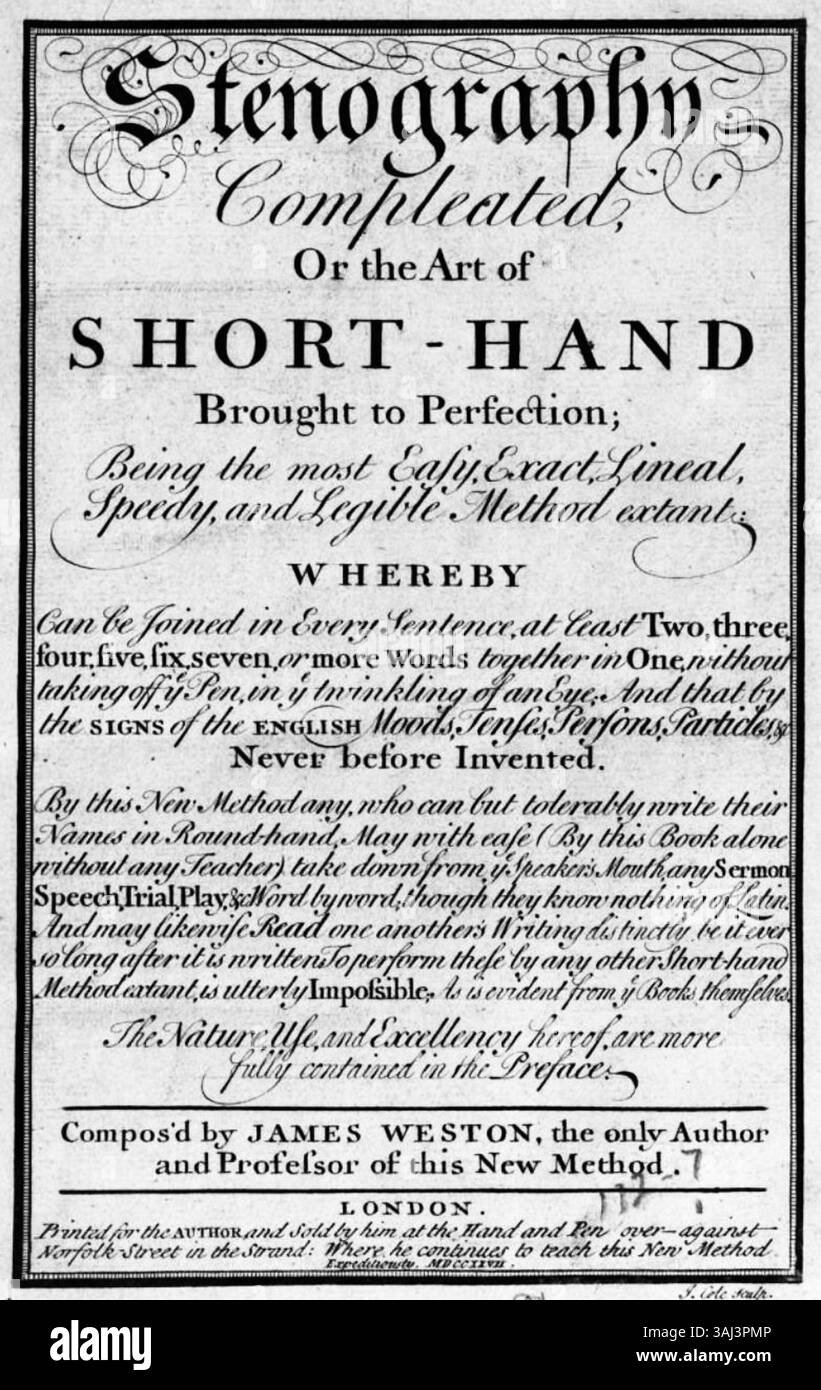 Stenography
Compleated,
Or the Art of
SHORT-HAND
Brought to Perfection;
Being the most Eaſy, Exact, Lineal,
Speedy, and Legible Method extant:
WHEREBY
Can be Joined in Every Sentence, at least Two, three,
four, five, ſix, seven, or more Words together in One, without
taking off yͤ Pen, in yͤ twinkling of an Eye; And that by
the SIGNS of the ENGLISH Moods, Tenſes, Perſons, Particles, &c
Never before Invented.
By this New Method any, who can but tolerably write their
Names in Round-hand, May with eaſe (By this Book alone
without any Teacher) take down from yͤ Speaker's Mouth, any Sermon
Speech, Trial, Play, &c Word by word; though they know nothing of Latin.
And may likewiſe Read one another's Writing distinctly, be it ever
so long after it is written. To perform theſe by any other Short-hand
Method extant, is utterly Impoſsible; As is evident from yͤ Books themſelves.
The Nature, Uſe, and Excellency hereof, are more
fully contained in the Preface.
Compos'd by JAMES WESTON, the only Author
and Profeſsor of this New Method.
1727
LONDON.
Printed for the AUTHOR, and Sold by him at the Hand and Pen over-against
Norfolk-Street in the Strand: Where he continues to teach this New Method
Expeditiously. MDCCXXVII.
J. Cole sculp.
alamy
Image ID: 3AJ3PMP
www.alamy.com